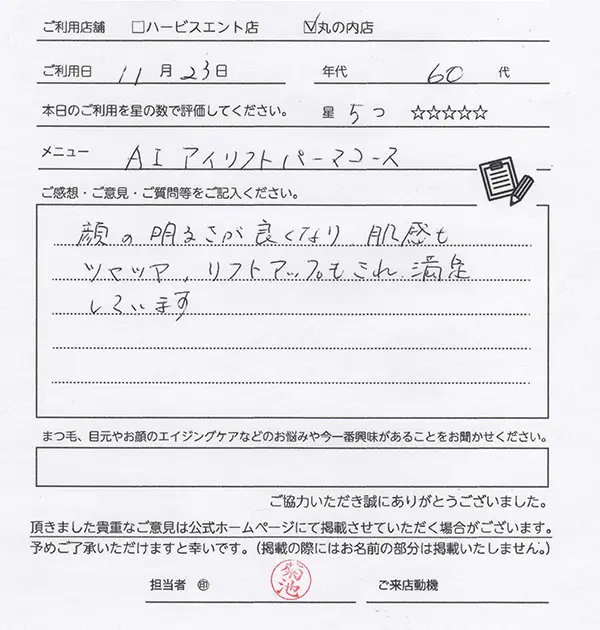 ご利用店舗 □ハービスエント店 ☑丸の内店
ご利用日 11月23日 年代 60代
本日のご利用を星の数で評価してください。 星 5つ ☆☆☆☆☆
メニュー AI アイリフトパーマコース
ご感想・ご意見・ご質問等をご記入ください。
顔の明るさが良くなり 肌感も
ツヤツヤ、リフトアップもされ、満足
しています
まつ毛、目元やお顔のエイジングケアなどのお悩みや今一番興味があることをお聞かせください。
ご協力いただき誠にありがとうございました。
頂きました貴重なご意見は公式ホームページにて掲載させていただく場合がございます。
予めご了承いただけますと幸いです。（掲載の際にはお名前の部分は掲載いたしません。）
担当者 ㊞ 菊池 ご来店動機